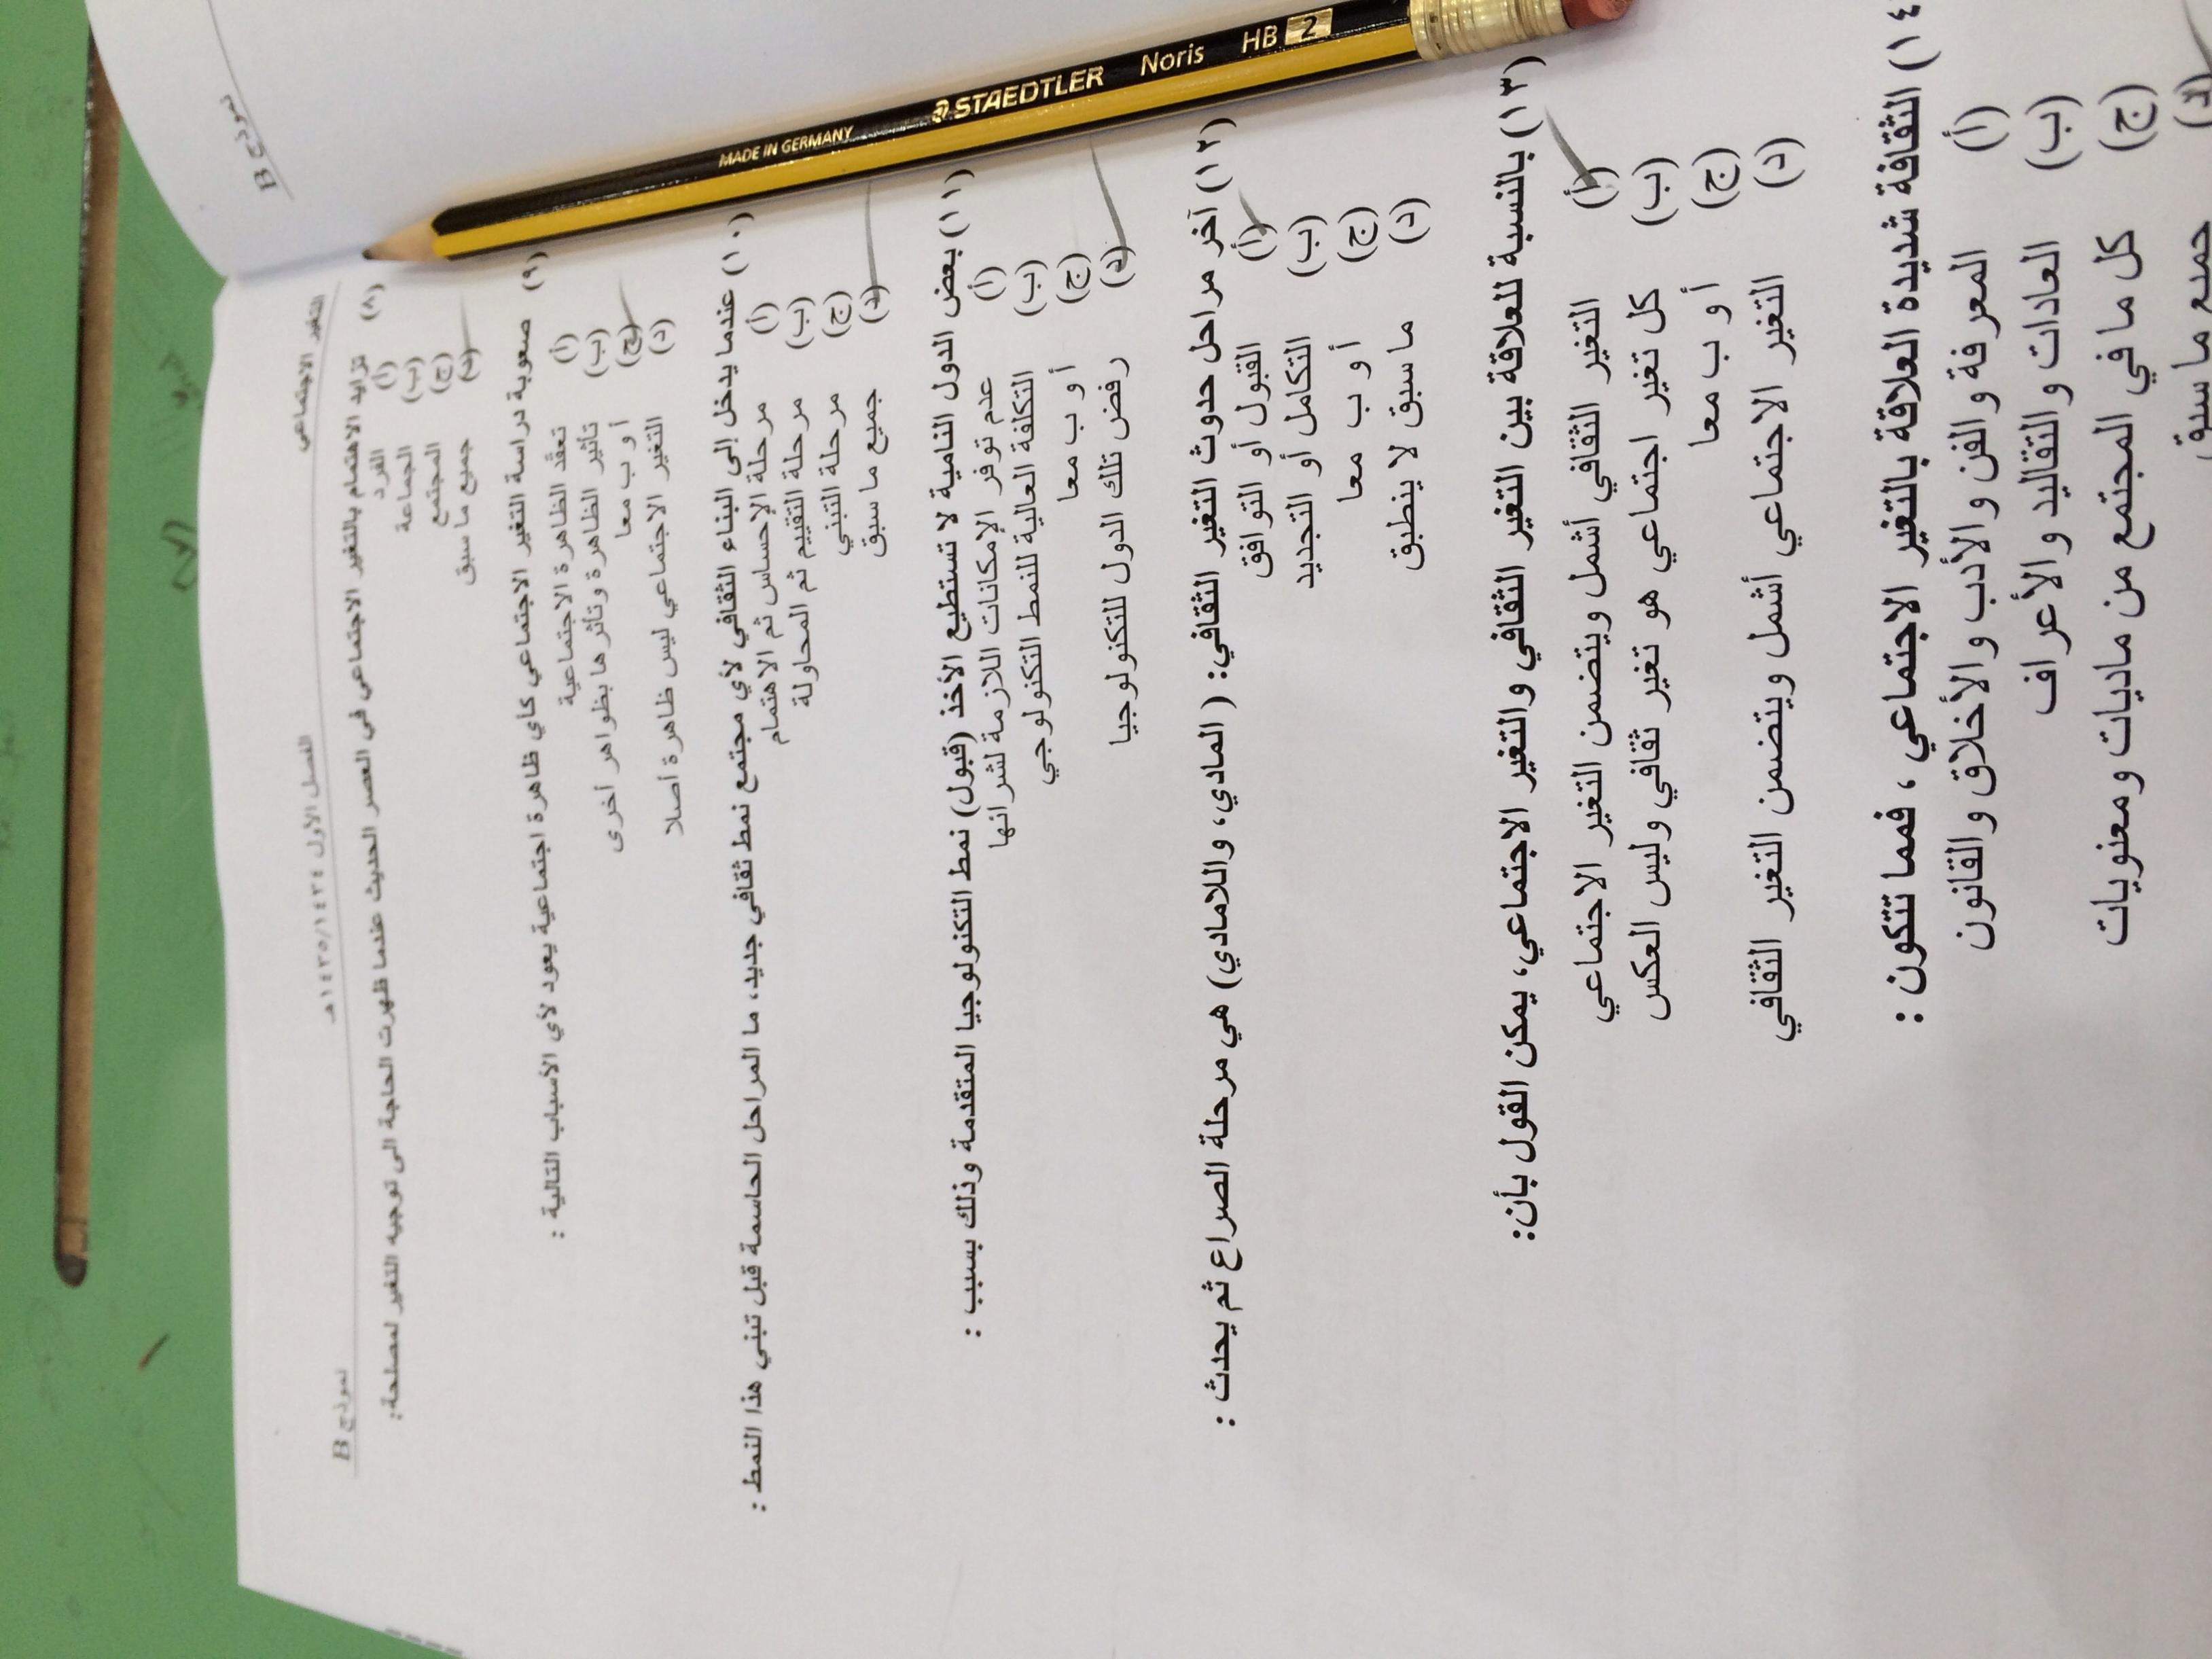 نموذج B
MADE IN GERMANY STAEDTLER Noris HB 2
التغير الاجتماعي الفصل الأول ١٤٣٥/١٤٣٤هـ نموذج B
(٨) تزايد الاهتمام بالتغير الاجتماعي في العصر الحديث عندما ظهرت الحاجة الى توجيه التغير لمصلحة:
(أ) الفرد
(ب) الجماعة
(ج) المجتمع
(د) جميع ما سبق
(٩) صعوبة دراسة التغير الاجتماعي كأي ظاهرة اجتماعية يعود لأي الأسباب التالية :
(أ) تعقّد الظاهرة الاجتماعية
(ب) تأثير الظاهرة وتأثرها بظواهر أخرى
(ج) أ و ب معا
(د) التغير الاجتماعي ليس ظاهرة أصلا
(١٠) عندما يدخل إلى البناء الثقافي لأي مجتمع نمط ثقافي جديد، ما المراحل الحاسمة قبل تبني هذا النمط :
(أ) مرحلة الإحساس ثم الاهتمام
(ب) مرحلة التقييم ثم المحاولة
(ج) مرحلة التبني
(د) جميع ما سبق
(١١) بعض الدول النامية لا تستطيع الأخذ (قبول) نمط التكنولوجيا المتقدمة وذلك بسبب :
(أ) عدم توفر الإمكانات اللازمة لشرائها
(ب) التكلفة العالية للنمط التكنولوجي
(ج) أ و ب معا
(د) رفض تلك الدول للتكنولوجيا
(١٢) آخر مراحل حدوث التغير الثقافي: ( المادي، واللامادي) هي مرحلة الصراع ثم يحدث :
(أ) القبول أو التوافق
(ب) التكامل أو التجديد
(ج) أ و ب معا
(د) ما سبق لا ينطبق
(١٣) بالنسبة للعلاقة بين التغير الثقافي والتغير الاجتماعي، يمكن القول بأن:
(أ) التغير الثقافي أشمل ويتضمن التغير الاجتماعي
(ب) كل تغير اجتماعي هو تغير ثقافي وليس العكس
(ج) أ و ب معا
(د) التغير الاجتماعي أشمل ويتضمن التغير الثقافي
(١٤) الثقافة شديدة العلاقة بالتغير الاجتماعي ، فمما تتكون :
(أ) المعرفة والفن والأدب والأخلاق والقانون
(ب) العادات والتقاليد والأعراف
(ج) كل ما في المجتمع من ماديات ومعنويات
(د) جميع ما سبق